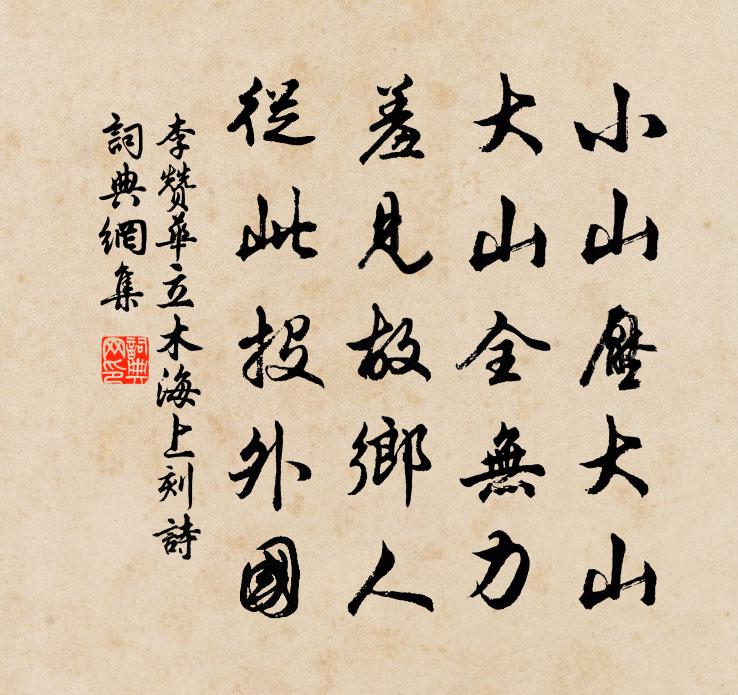 小山壓大山
大山全無力
羞見故鄉人
從此投外國
李贊華立木海上刻詩
詞典網集
詞典網印